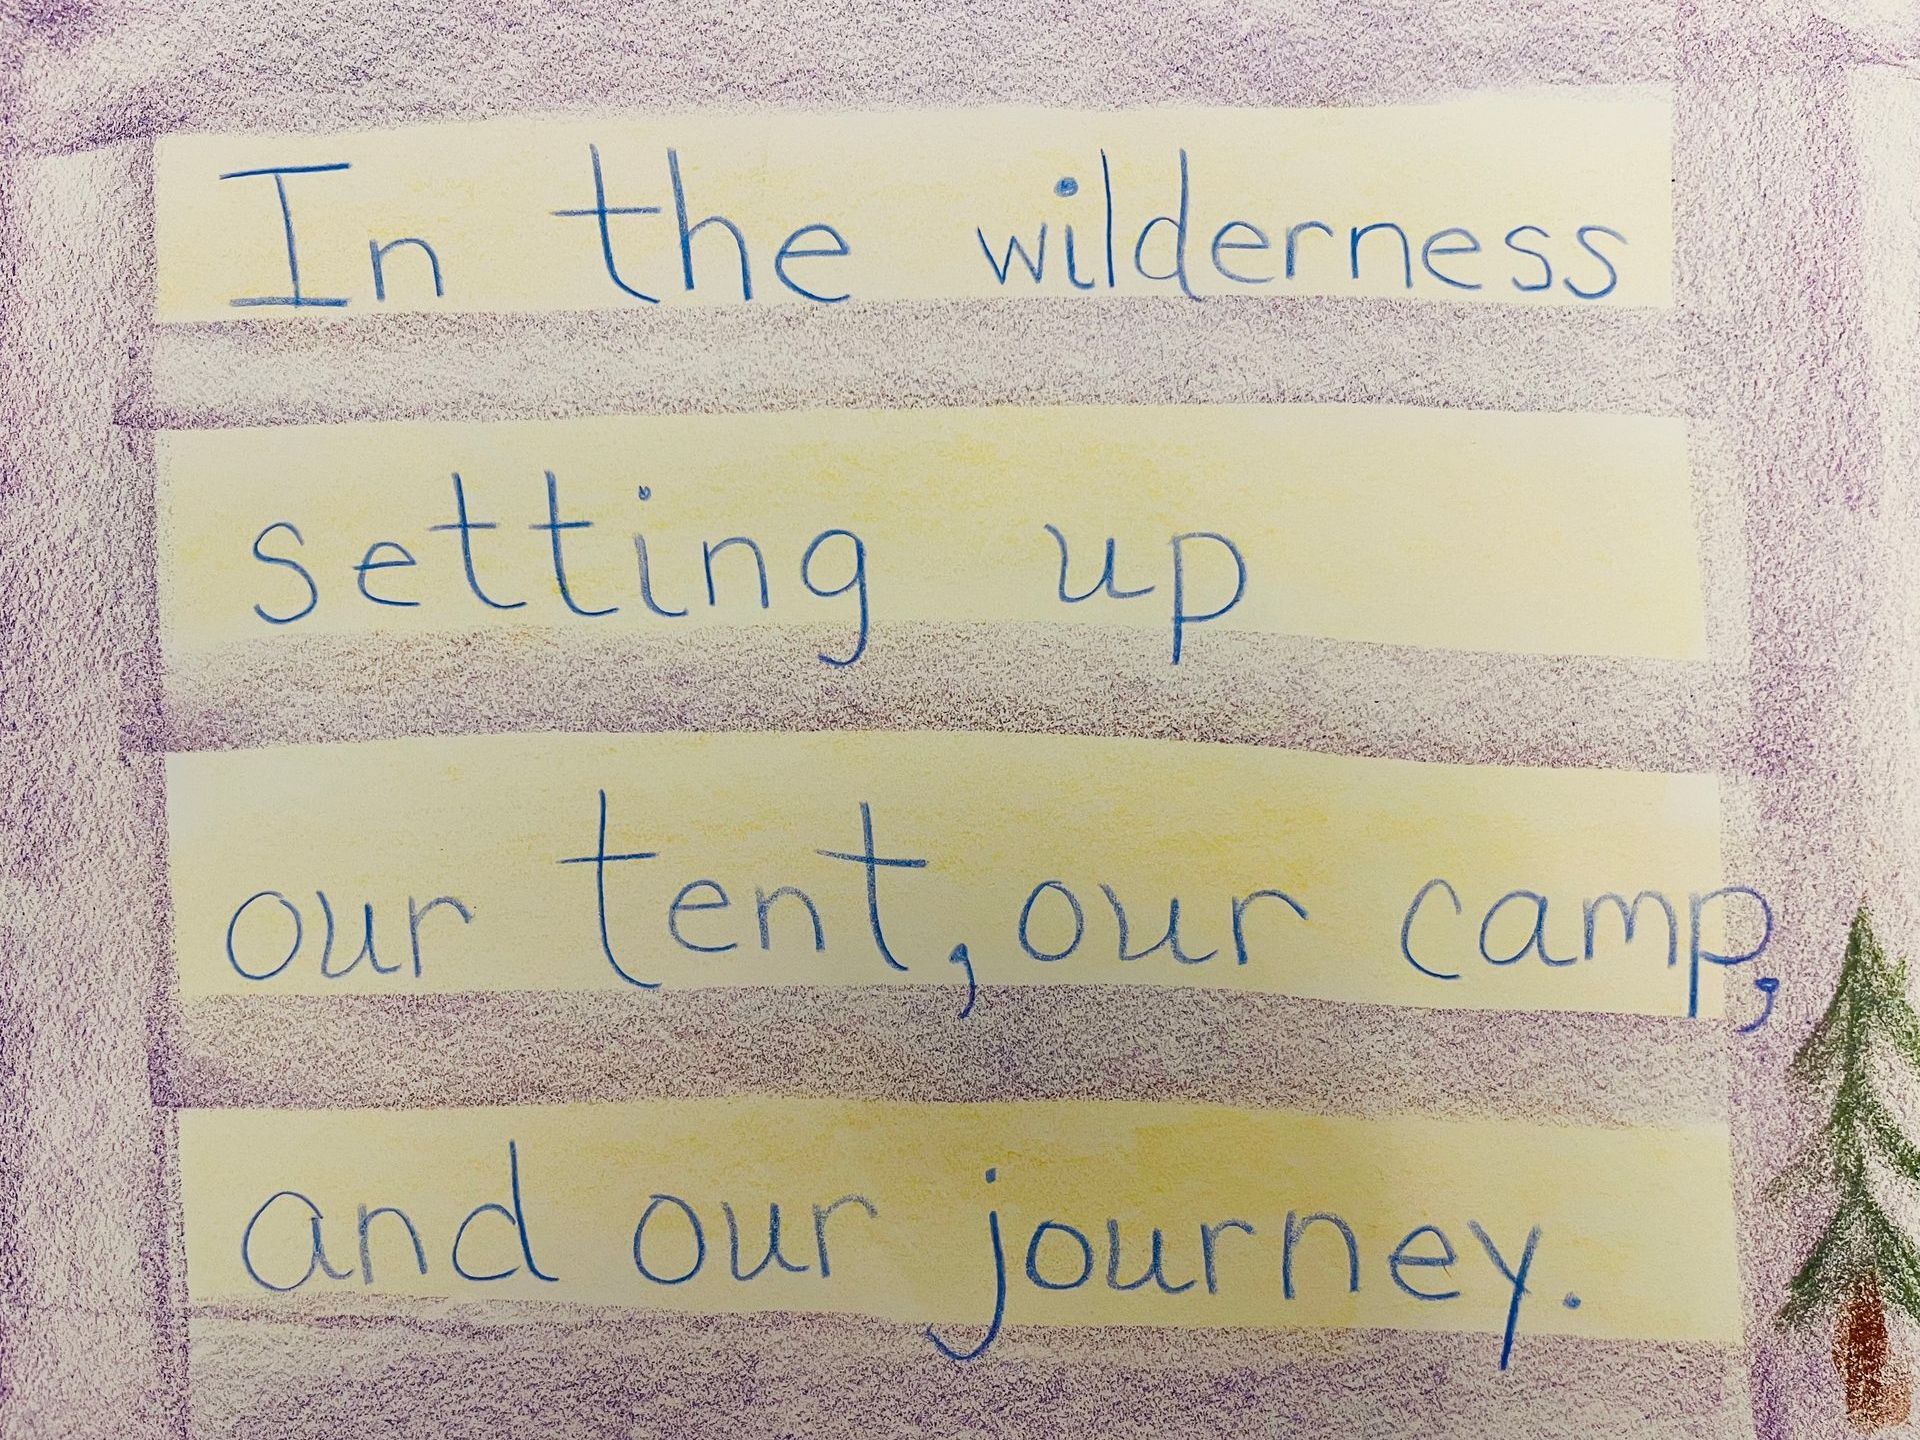 In the wilderness
setting up
our tent, our camp,
and our journey.